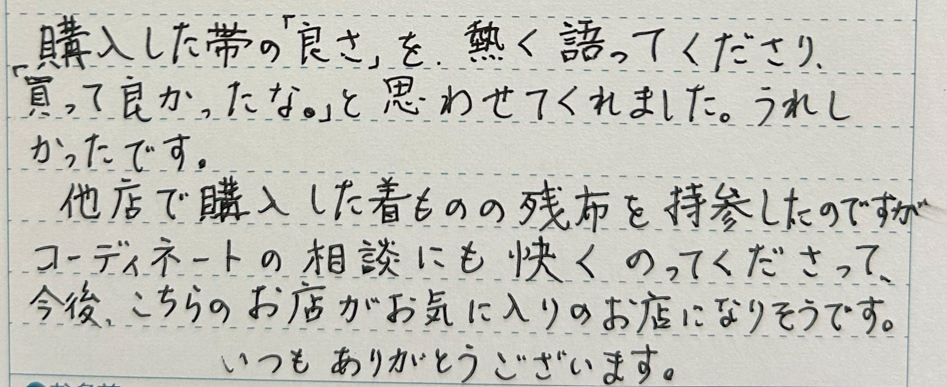 購入した帯の「良さ」を、熱く語ってくださり、
「買って良かったな。」と思わせてくれました。うれし
かったです。
他店で購入した着ものの残布を持参したのですが
コーディネートの相談にも快くのってくださって、
今後、こちらのお店がお気に入りのお店になりそうです。
いつもありがとうございます。